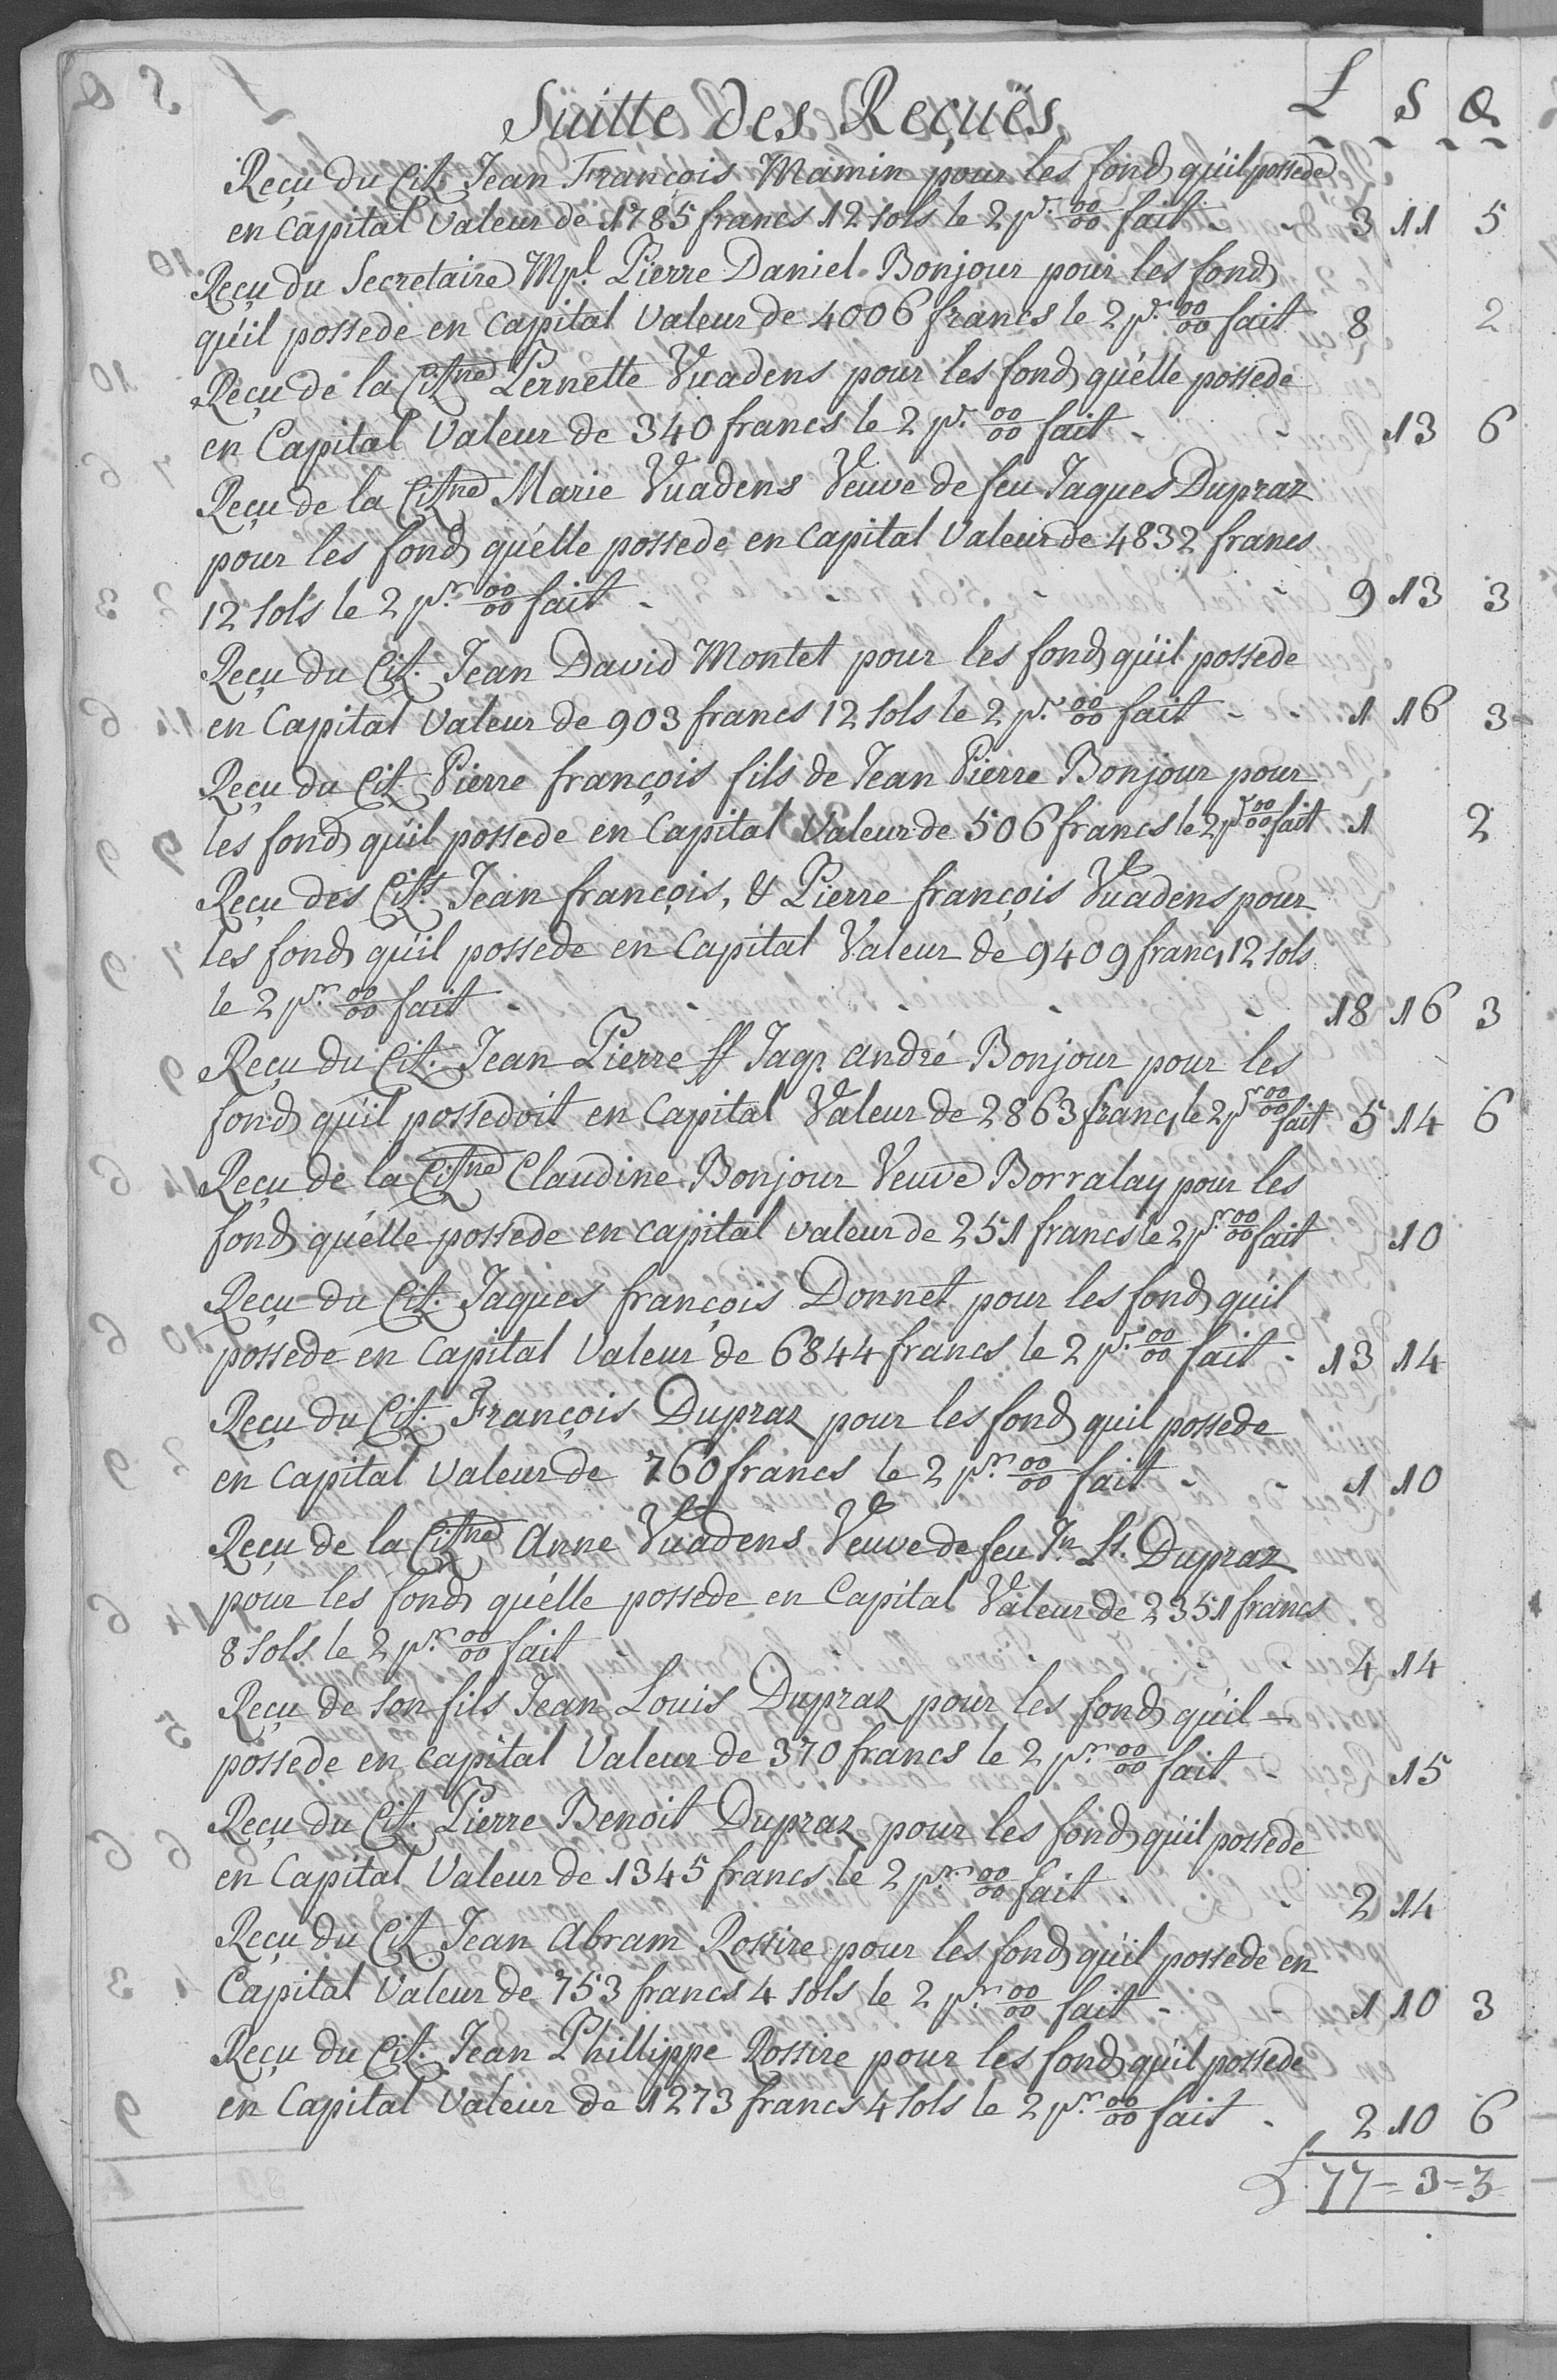 Suitte des Reçuës £ S D
Reçu du Cit. Jean François Mamin pour les fonds qu'il possede
en Capital Valeur de 1785 francs 12 sols le 2 pr. 00/00 fait - - 3 11 5
Reçu du Secretaire Mpl. Pierre Daniel Bonjour pour les fonds
qu'il possede en Capital Valeur de 4006 francs le 2 pr. 00/00 fait 8 2
Reçu de la Citne Pernette Vuadens pour les fonds qu'elle possede
en Capital Valeur de 340 francs le 2 pr. 00/00 fait - - 13 6
Reçu de la Citne Marie Vuadens Veuve de feu Jaques Dupraz
pour les fonds qu'elle possede en Capital Valeur de 4832 francs
12 sols le 2 pr. 00/00 fait - - - - 9 13 3
Reçu du Cit. Jean David Montet pour les fonds qu'il possede
en Capital Valeur de 903 francs 12 sols le 2 pr. 00/00 fait - - 1 16 3
Reçu du Cit. Pierre françois fils de Jean Pierre Bonjour pour
les fonds qu'il possede en Capital Valeur de 506 francs le 2 pr 00/00 fait 1 2
Reçu des Cits. Jean françois, & Pierre françois Vuadens pour
les fonds qu'il possede en Capital Valeur de 9409 francs 12 sols
le 2 pr. 00/00 fait - - - - - 18 16 3
Reçu du Cit. Jean Pierre ff Jaqs. andré Bonjour pour les
fonds qu'il possedoit en Capital Valeur de 2863 francs le 2 pr 00/00 fait 5 14 6
Reçu de la Citne Claudine Bonjour Veuve Borralay pour les
fonds qu'elle possede en capital valeur de 251 francs le 2 pr. 00/00 fait 10
Reçu du Cit. Jaques françois Donnet pour les fonds qu'il
possede en Capital Valeur de 6844 francs le 2 pr. 00/00 fait - 13 14
Reçu du Cit. François Dupraz pour les fonds quil possede
en Capital Valeur de 760 francs le 2 pr. 00/00 fait - - 1 10
Reçu de la Citne Anne Vuadens Veuve de feu Jn Ls. Dupraz
pour les fonds qu'elle possede en Capital Valeur de 2351 francs
8 sols le 2 pr. 00/00 fait - - - - 4 14
Reçu de son fils Jean Louis Dupraz pour les fonds qu'il -
possede en capital Valeur de 370 francs le 2 pr. 00/00 fait - 15
Reçu du Cit. Pierre Benoit Dupraz pour les fonds qu'il possede
en Capital Valeur de 1345 francs le 2 pr. 00/00 fait - - 2 14
Reçu du Cit. Jean Abram Rossire pour les fonds qu'il possede en
Capital Valeur de 753 francs 4 sols le 2 pr. 00/00 fait - - 1 10 3
Reçu du Cit. Jean Phillippe Rossire pour les fonds qu'il possede
en Capital Valeur de 1273 francs 4 sols le 2 pr. 00/00 fait - 2 10 6
£ 77 = 3 = 3